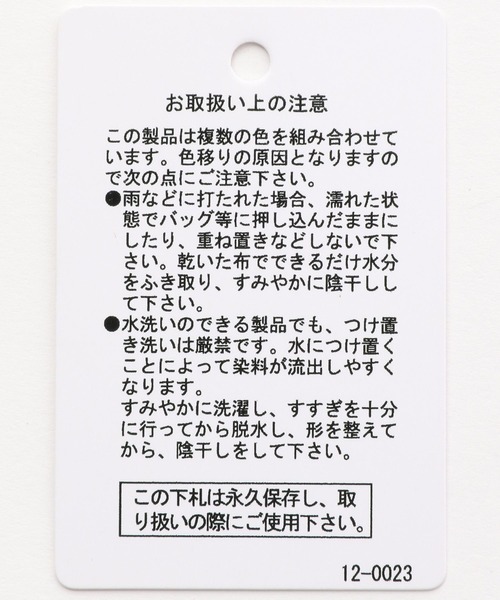 お取扱い上の注意
この製品は複数の色を組み合わせて
います。色移りの原因となりますの
で次の点にご注意下さい。
●雨などに打たれた場合、濡れた状
態でバッグ等に押し込んだままに
したり、重ね置きなどしないで下
さい。乾いた布でできるだけ水分
をふき取り、すみやかに陰干しし
て下さい。
●水洗いのできる製品でも、つけ置
き洗いは厳禁です。水につけ置く
ことによって染料が流出しやすく
なります。
すみやかに洗濯し、すすぎを十分
に行ってから脱水し、形を整えて
から、陰干しをして下さい。
この下札は永久保存し、取
り扱いの際にご使用下さい。
12-0023